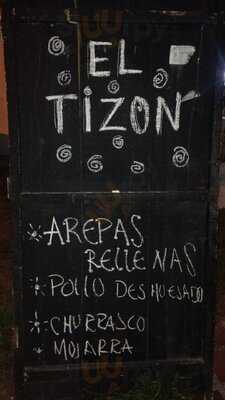 EL
TIZON
AREPAS
RELLENAS
POLLO DESHUESADO
CHURRASCO
MOJARRA